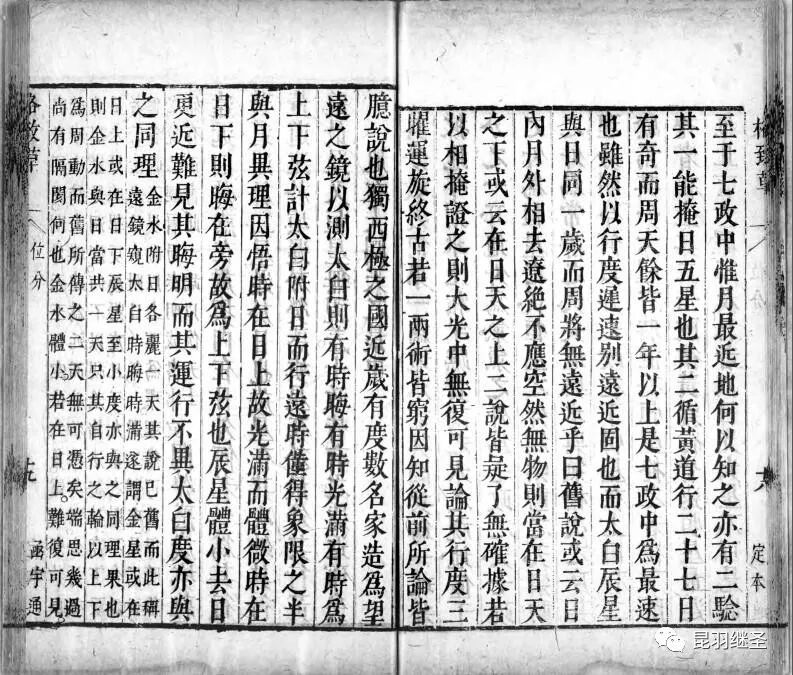 格致草
定本
至于七政中惟月最近地何以知之亦有二騐
其一能掩日五星也其二循黃道行二十七日
有奇而周天餘皆一年以上是七政中爲最速
也雖然以行度遲速别遠近固也而太白辰星
與日同一歲而周將無遠近乎曰舊說或云日
內月外相去遼絶不應空然無物則當在日天
之下或云在日天之上二說皆疑了無確據若
以相掩證之則大光中無復可見論其行度三
曜運旋終古若一兩術皆窮因知從前所論皆
臆說也獨西極之國近歲有度數名家造爲望
遠之鏡以測太白則有時晦有時光滿有時爲
上下弦計太白附日而行遠時僅得象限之半
與月異理因悟時在日上故光滿而體微時在
日下則晦在旁故爲上下弦也辰星體小去日
更近難見其晦明而其運行不異太白度亦與
之同理
金水附日各麗一天其說已舊而此稱
遠鏡窺太白時晦時滿遂謂金星或在
日上或在日下辰星至小度亦與之同理果也
則金水與日當共一天只其自行之輪以上下
爲周動而舊所傳之二天無可憑矣端思幾過
尚有隔閡何也金水體小若在日上難復可見
格致草
位分
函宇通
昆羽继圣